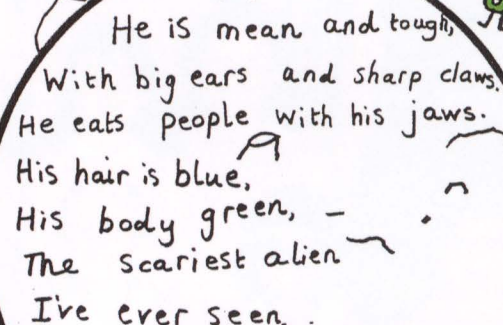 He is mean and tough,
With big ears and sharp claws.
He eats people with his jaws.
His hair is blue,
His body green,
The scariest alien
I've ever seen.